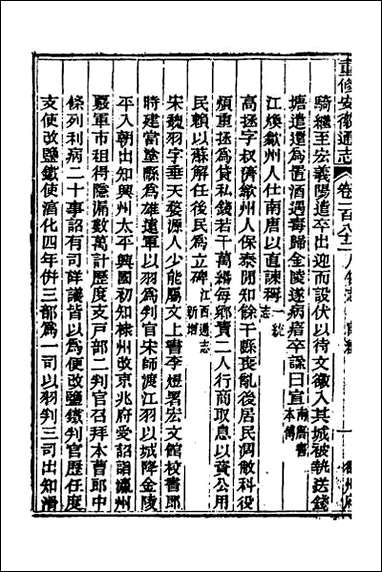 重修安徽通志 卷一百八十二 人物志
騎繼至宏義陽遣卒出迎而設伏以待文徽入其城被執送錢
塘遣還為置酒遇毒歸金陵遂病瘖卒謚曰宣 南唐書本傳
江煥歙州人仕南唐以直諫稱 一統志
高拯字叔濟歙州人保泰閒知餘干縣喪亂後居民凋敝科役
煩重拯為貸私錢若干萬緡每鄉賣二人行商取息以資公用
民賴以蘇解任後民為立碑 江西通志新增
宋魏羽字垂天婺源人少能屬文上書李煜署宏文館校書郎
時建當塗縣為雄遠軍以羽為判官宋師渡江羽以城降金陵
平入朝出知興州太平興國初知棣州改京兆府受詔詣瀛州
覈軍市租得隱漏數萬計歷度支戶部二判官召拜本曹郎中
條列利病二十事詔有司詳議皆以為便改鹽鐵判官歷任度
支使改鹽鐵使淳化四年併三部為一司以羽判三司出知滑